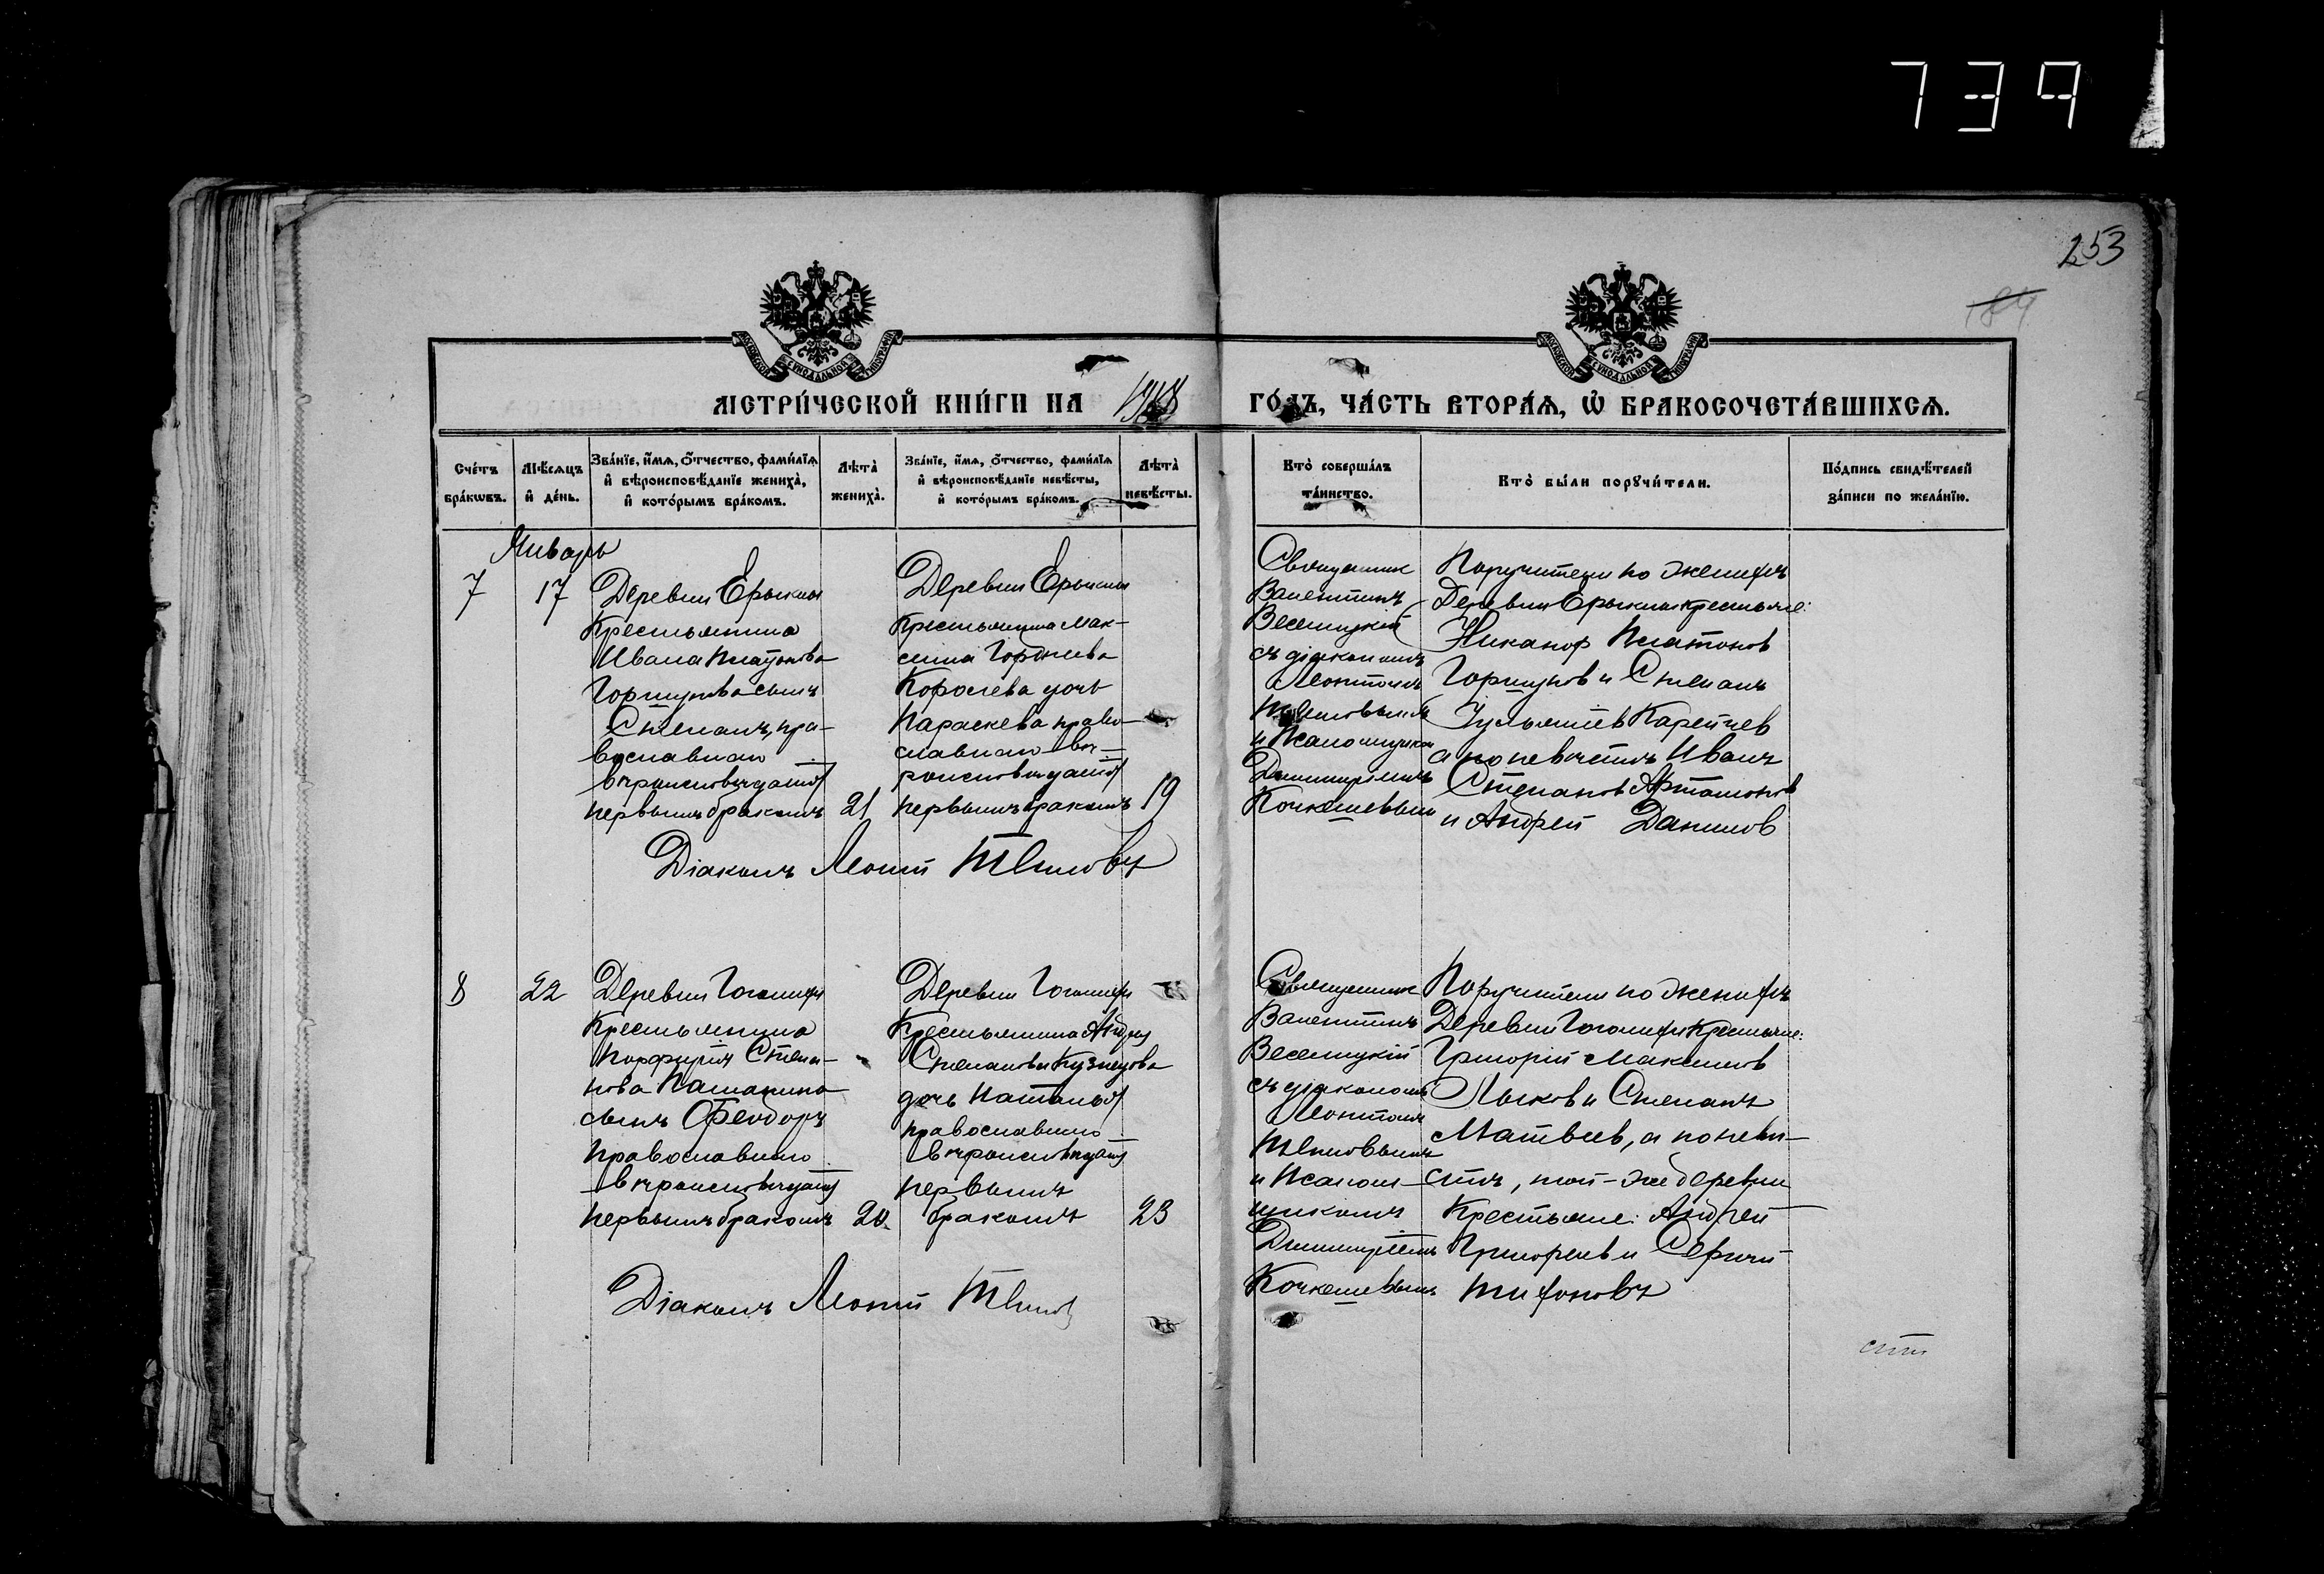 739
253
184
МЕТРИ́ЧЕСКОЙ КНИ́ГИ НА 1918 ГО́ДЪ, ЧА́СТЬ ВТОРА́Я, Ѡ БРАКОСОЧЕТА́ВШИХСЯ.
Сче́тъ бра́кѡвъ.
Мѣ́сяцъ и де́нь.
Зва́нїе, и́мя, ѻ́тчество, фами́лїя
и вѣроисповѣ́данїе жениха̀,
и кото́рымъ бра́комъ.
Лѣта̀ жениха̀.
Зва́нїе, и́мя, ѻ́тчество, фами́лїя
и вѣроисповѣ́данїе невѣ́сты,
и кото́рымъ бра́комъ.
Лѣта̀ невѣ́сты.
Кто̀ соверша́лъ та́инство.
Кто̀ бы́ли порꙋчи́тели.
По́дпись свидѣ́телей
за́писи по жела́нїю.
Январь
7
17
Деревни Ерыкли
Крестьянина
Ивана Платонова
Горшунова сынъ
Степанъ, пра-
вославнаго
первымъ бракомъ
21
Деревни Ерыкли
Крестьянина Мак-
сима Гордѣева
Королева дочь
Параскева право-
славнаго вѣ-
первымъ бракомъ
19
Священникъ
Валентинъ
Веселицкій
съ діакономъ
Леонтіемъ
и Псаломщиком
Димитріемъ
Поручители по женихѣ
Деревни Ерыкли крестьяне:
Никанор Платонов
Горшунов и Степанъ
а по невѣстѣ Иванъ
Степанов Артамонов
и Андрей Данилов
Діаконъ Леонтій
8
22
Деревни
Крестьянина
Порфирія Степа-
нова
сынъ Феодоръ
православнаго
первымъ бракомъ
20.
Деревни
Крестьянина Андрея
Степанова Кузнецова
дочь Наталья
православнаго
первымъ
бракомъ
23
Священникъ
Валентинъ
Веселицкій
съ діакономъ
Леонтіемъ
и Псалом-
щикомъ
Димитріемъ
Поручители по женихѣ
Деревни Крестьяне:
Григорій Максимов
и Степанъ
Матвеев, а по невѣ-
стѣ, той-же деревни
Крестьяне: Андрей
Григорьев и Сергѣй
Діаконъ Леонтій